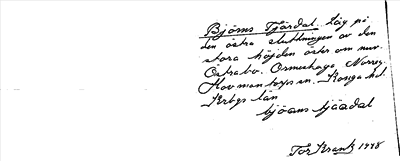 Björns Tjärdal. Låg på
den östra sluttningen av den
stora höjden öster om nuv.
Östrabo. Ormeshaga Norreg.
Hovmantorps sn. Konga hd.
Krbgs län
björns tjärdal
Tor Krantz 1948